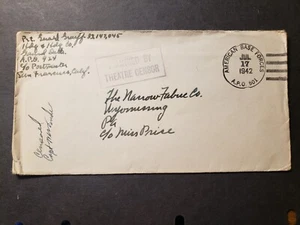 Pvt
Hdq & Hdq Co,
A.P.O. 924
c/o Postmaster
San Francisco, Calif.
PASSED BY
THEATRE CENSOR
AMERICAN BASE FORCES
JUL
17
1942
A.P.O. 501
The Narrow Fabric Co.
Wyomissing
Pa
c/o Miss Brise
Censored
Capt